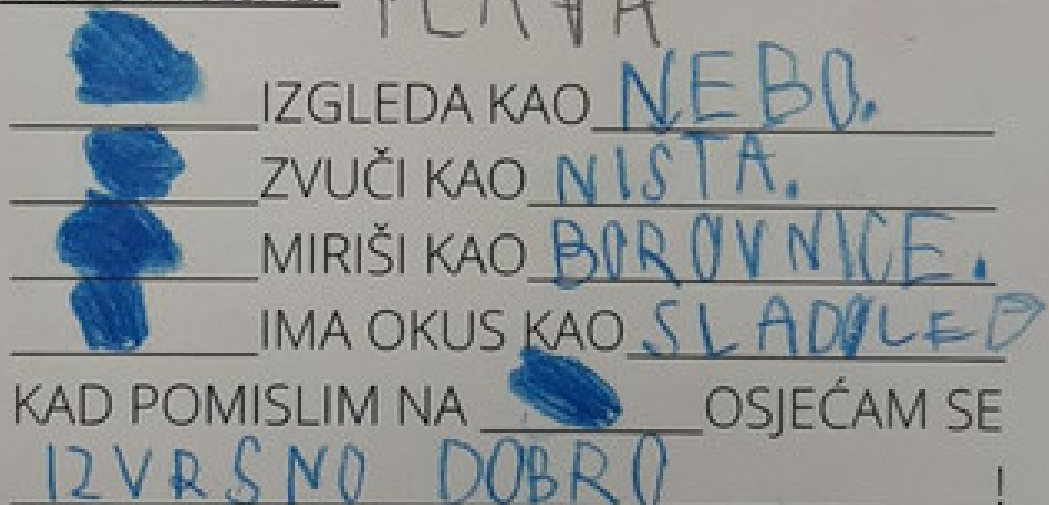 PLAVA
IZGLEDA KAO NEBO.
ZVUČI KAO NISTA.
MIRIŠI KAO BOROVNICE.
IMA OKUS KAO SLADOLED
KAD POMISLIM NA OSJEĆAM SE
IZVRSNO DOBRO !